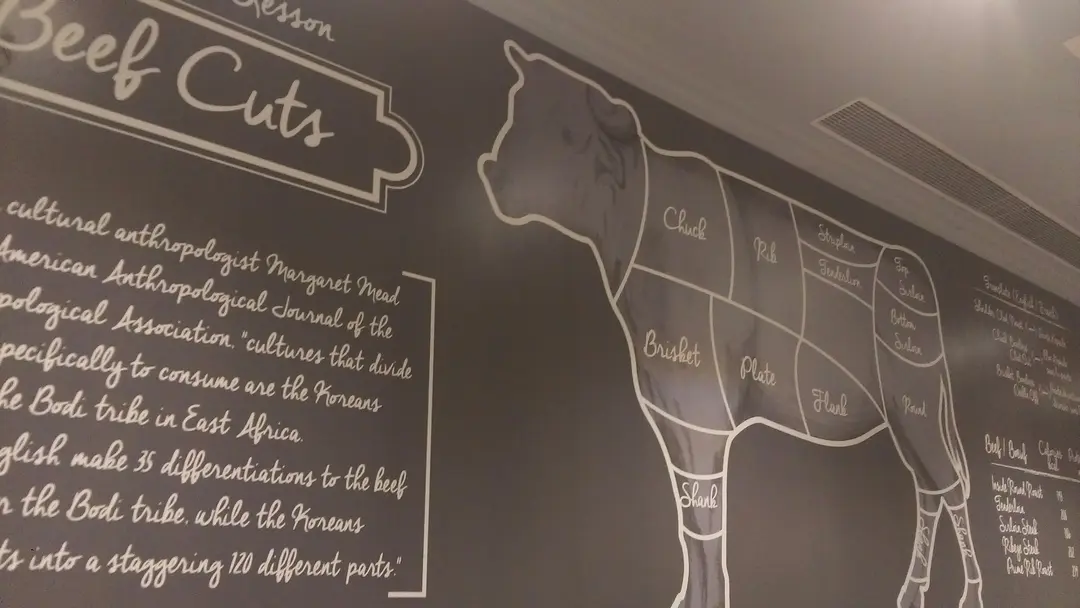 Lesson
Beef Cuts
cultural anthropologist Margaret Mead
American Anthropological Journal of the
pological Association, "cultures that divide
pecifically to consume are the Koreans
he Bodi tribe in East Africa.
glish make 35 differentiations to the beef
r the Bodi tribe, while the Koreans
ts into a staggering 120 different parts."
Chuck
Rib
Striploin
Tenderloin
Top
Sirloin
Bottom
Sirloin
Brisket
Plate
Flank
Round
Shank
Shank
Beef / Boeuf
Inside Round Roast
Tenderloin
Sirloin Steak
Ribeye Steak
Prime Rib Roast